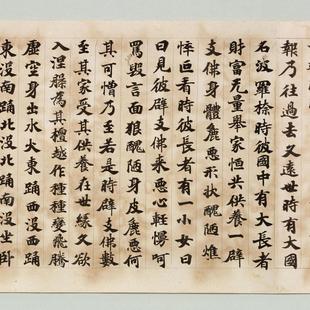 報乃往過去久遠世時有大國
名波羅捺時彼國中有大長者
財富无量舉家恒共供養一辟
支佛身體麁惡形狀醜陋燋
悴叵看時彼長者有一小女日
日見彼辟支佛來惡心輕慢呵
罵毀言面貌醜陋身皮麁惡何
其可憎乃至若是時辟支佛數
至其家受其供養在世縁久欲
入涅槃為其檀越作種種變飛騰
虛空身出水火東踊西沒西踊
東沒南踊北沒北踊南沒坐臥